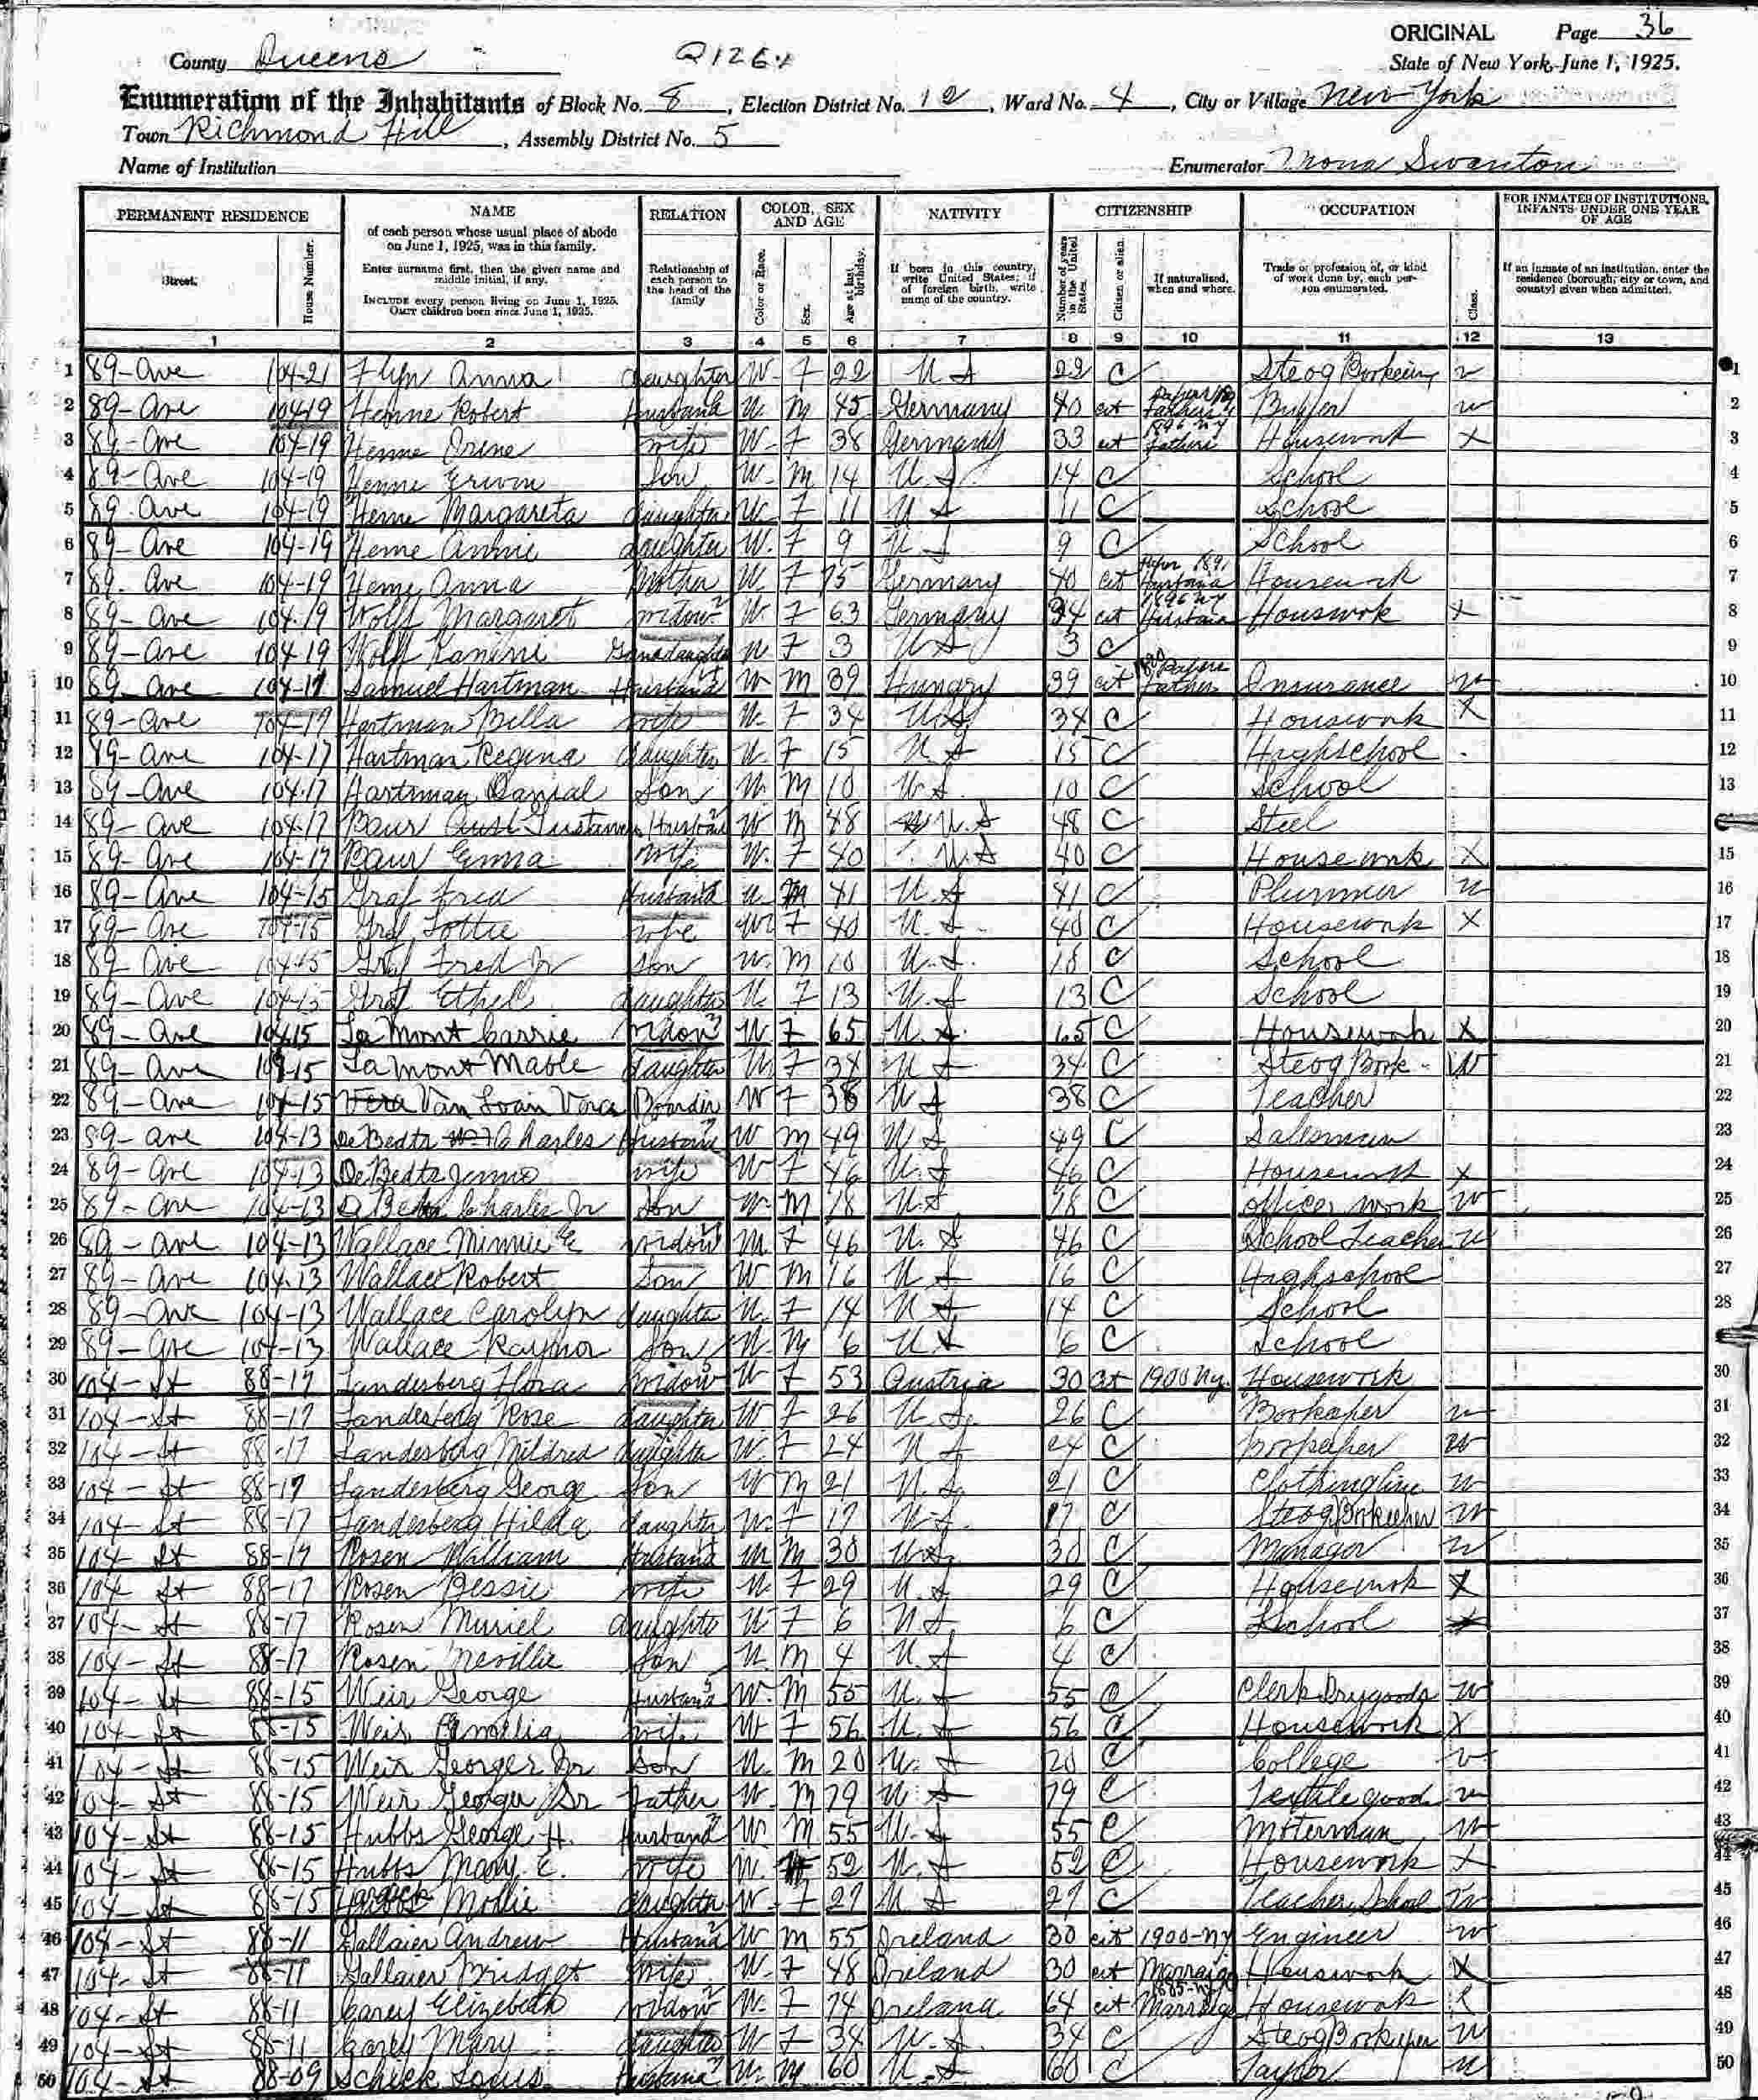 ORIGINAL Page 36
County Queens Q126
State of New York, June 1, 1925.
Enumeration of the Inhabitants of Block No. 8, Election District No. 12, Ward No. 4, City or Village New York
Town Richmond Hill, Assembly District No. 5
Name of Institution Enumerator Mona Swanton
PERMANENT RESIDENCE NAME RELATION COLOR, SEX AND AGE NATIVITY CITIZENSHIP OCCUPATION FOR INMATES OF INSTITUTIONS, INFANTS UNDER ONE YEAR OF AGE
Street. House Number.
of each person whose usual place of abode on June 1, 1925, was in this family.
Enter surname first, then the given name and middle initial, if any.
INCLUDE every person living on June 1, 1925. OMIT children born since June 1, 1925.
Relationship of each person to the head of the family
Color or Race. Sex. Age at last birthday.
If born in this country, write United States; if of foreign birth, write name of the country.
Number of years in the United States. Citizen or alien. If naturalized, when and where.
Trade or profession of, or kind of work done by, each person enumerated. Class.
If an inmate of an institution, enter the residence (borough, city or town, and county) given when admitted.
1 2 3 4 5 6 7 8 9 10 11 12 13
1 89-Ave 104-21 Flyn Anna daughter W. F 22 U S 22 C Steog Bookeein w 1
2 89-Ave 104-19 Henne Robert Husband W. M 45 Germany 40 cit papers Fathers w 2
3 89-Ave 104-19 Henne Irine wife W. F 38 Germany 33 cit 1896 NY Fathers Housework X 3
4 89-Ave 104-19 Henne Erwin Son W. M 14 U.S 14 C School 4
5 89-Ave 104-19 Henne Margareta daughter W. F 11 U S 11 C School 5
6 89-Ave 104-19 Henne Annie daughter W. F 9 U S 9 C School 6
7 89-Ave 104-19 Henne Anna Mother W. F 75 Germany 40 cit Husband Housework 7
8 89-Ave 104-19 Wolff Margaret widow W. F 63 Germany 34 cit 1896 NY Husband Houswork X 8
9 89-Ave 104-19 Wolff Granddaughter W. F 3 U S 3 C 9
10 89-Ave 104-17 Samuel Hartman Husband W M 39 Hungry 39 cit papers Father Insurance w 10
11 89-Ave 104-17 Hartman Billa wife W. F 34 U.S. 34 C Housework X 11
12 89-Ave 104-17 Hartman Regina daughter W. F 15 U S 15 C Highschool 12
13 89-Ave 104-17 Hartman Danial Son W. M 10 U.S. 10 C School 13
14 89-Ave 104-17 Baur Gustave Husband W M 48 U.S 48 C Steel 14
15 89-Ave 104-17 Baur Emma wife W. F 40 U.S 40 C Housework X 15
16 89-Ave 104-15 Graf Fred Husband W M 41 U.S 41 C Plummer w 16
17 89-Ave 104-15 Graf Lottie wife W F 40 U.S. 40 C Housework X 17
18 89-Ave 104-15 Graf Fred Jr Son W. M 18 U.S. 18 C School 18
19 89-Ave 104-15 Graf Ethel daughter W. F 13 U.S 13 C School 19
20 89-Ave 104-15 La Mont Carrie widow W F 65 U S. 65 C Housework X 20
21 89-Ave 104-15 La Mont Mable daughter W. F 34 U S. 34 C Steog Book. W 21
22 89-Ave 104-15 Vera Van Loan Vera Boarder W F 38 U S 38 C Teacher 22
23 89-Ave 104-13 De Bedts Charles Husband W M 49 U S 49 C Salesman 23
24 89-Ave 104-13 De Bedts Jennie wife W F 46 U.S 46 C Housework X 24
25 89-Ave 104-13 Charles Jr Son W. M 18 U.S 18 C office work w 25
26 89-Ave 104-13 Wallace Minnie E widow W. F 46 U.S 46 C School Teacher w 26
27 89-Ave 104-13 Wallace Robert Son W M 16 U S 16 C Highschool 27
28 89-Ave 104-13 Wallace Carolyn daughter W. F 14 U S 14 C School 28
29 89-Ave 104-13 Wallace Raynor Son W M 6 U S 6 C School 29
30 104-St 88-17 Landesberg Flora widow W F 53 Austria 30 cit 1900 Ny. Housework 30
31 104-St 88-17 Landesberg Rose daughter W F 26 U S. 26 C Bookeper w 31
32 104-St 88-17 Landesberg Mildred daughter W. F 24 U S 24 C Bookeeper W 32
33 104-St 88-17 Landesberg George Son W M 21 U.S. 21 C Clothing line w 33
34 104-St 88-17 Landesberg Hilda daughter W. F 17 U.S. 17 C Steog Bookeeper w 34
35 104-St 88-17 Rosen William Husband W M 30 U.S. 30 C Manager w 35
36 104-St 88-17 Rosen Bessie wife W. F 29 U.S 29 C Housework X 36
37 104-St 88-17 Rosen Muriel daughter W. F 6 U S 6 C School 37
38 104-St 88-17 Rosen Nevillie Son W. M 4 U.S 4 C 38
39 104-St 88-15 Weir George Husband W. M 55 U.S 55 C Clerk Drygoods w 39
40 104-St 88-15 Weir Emillia wife W F 56 U.S 56 C Housework X 40
41 104-St 88-15 Weir George Jr Son W. M 20 U.S 20 C College w 41
42 104-St 88-15 Weir George Sr Father W. M 79 U S 79 C Textile goods w 42
43 104-St 88-15 Hubbs George H. Husband W. M 55 U.S 55 C Moterman w 43
44 104-St 88-15 Hubbs Mary E. wife W. F 52 U.S 52 C Housework X 44
45 104-St 88-15 Mollie daughter W. F 27 U S 27 C Teacher School w 45
46 104-St 88-11 Gallaier Andrew Husband W M 55 Ireland 30 cit 1900-NY Engineer w 46
47 104-St 88-11 Gallaier Bridget wife W. F 48 Ireland 30 cit Marraige Housework X 47
48 104-St 88-11 Carey Elizebeth widow W. F 74 Ireland 64 cit 1885-NY Marraige Housework X 48
49 104-St 88-11 Carey Mary daughter W F 34 U.S. 34 C Steog Bookeper w 49
50 104-St 88-09 Schick Louis Husband W. M 60 U.S 60 C Taylor w 50